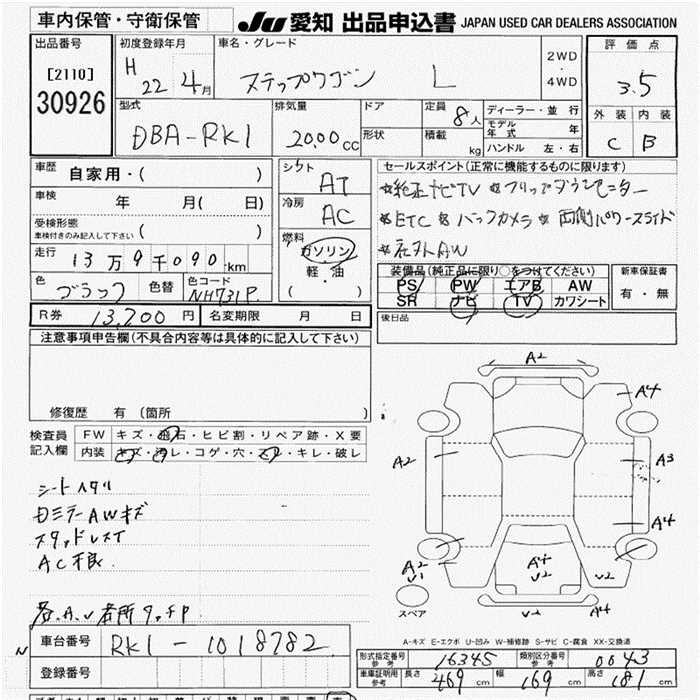 車内保管・守衛保管
JU 愛知 出品申込書 JAPAN USED CAR DEALERS ASSOCIATION
出品番号
[2110]
30926
初度登録年月
H 22 4月
車名・グレード
ステップワゴン L
2WD
・
4WD
評価点
3.5
外装 内装
C B
型式
DBA-RK1
排気量
2000cc
ドア
形状
定員 8人
積載 kg
ディーラー・並行
モデル年式 年
ハンドル 左・右
車歴
自家用・( )
車検 年 月( 日)
受検形態
車検付きのみ記入して下さい ( )
走行 13万9千090km
色 ブラック 色替 色コード NH731P
シフト AT
冷房 AC
燃料
ガソリン
軽・油
( )
セールスポイント(正常に機能するものに限ります)
☆純正ナビTV ☆フリップダウンモニター
☆ETC ☆バックカメラ ☆両側パワースライド
☆社外AW
装備品(純正品に限り○をつけてください)
PS PW エアB AW
SR ナビ TV カワシート
新車保証書
有・無
後日品
R券 13,700円 名変期限 月 日
注意事項申告欄(不具合内容等は具体的に記入して下さい)
修復歴 有(箇所 )
検査員記入欄
FW キズ・飛石・ヒビ割・リペア跡・X要
内装 キズ・汚レ・コゲ・穴・スレ・キレ・破レ
シートスレ
Dミラー AWキズ
スタッドレス
AC不良
各A.U 各所タッチP
A2
A4
A2
A3
A4
A2
U1
A4
U2
U2
U2
A4
スペア
A-キズ E-エクボ U-凹み W-補修跡 S-サビ C-腐食 XX-交換済
車台番号 RK1-1018782
登録番号
形式指定番号 参考 16345 類別区分番号 参考 0043
車庫証明用 参考 長さ 469cm 幅 169cm 高さ 181cm